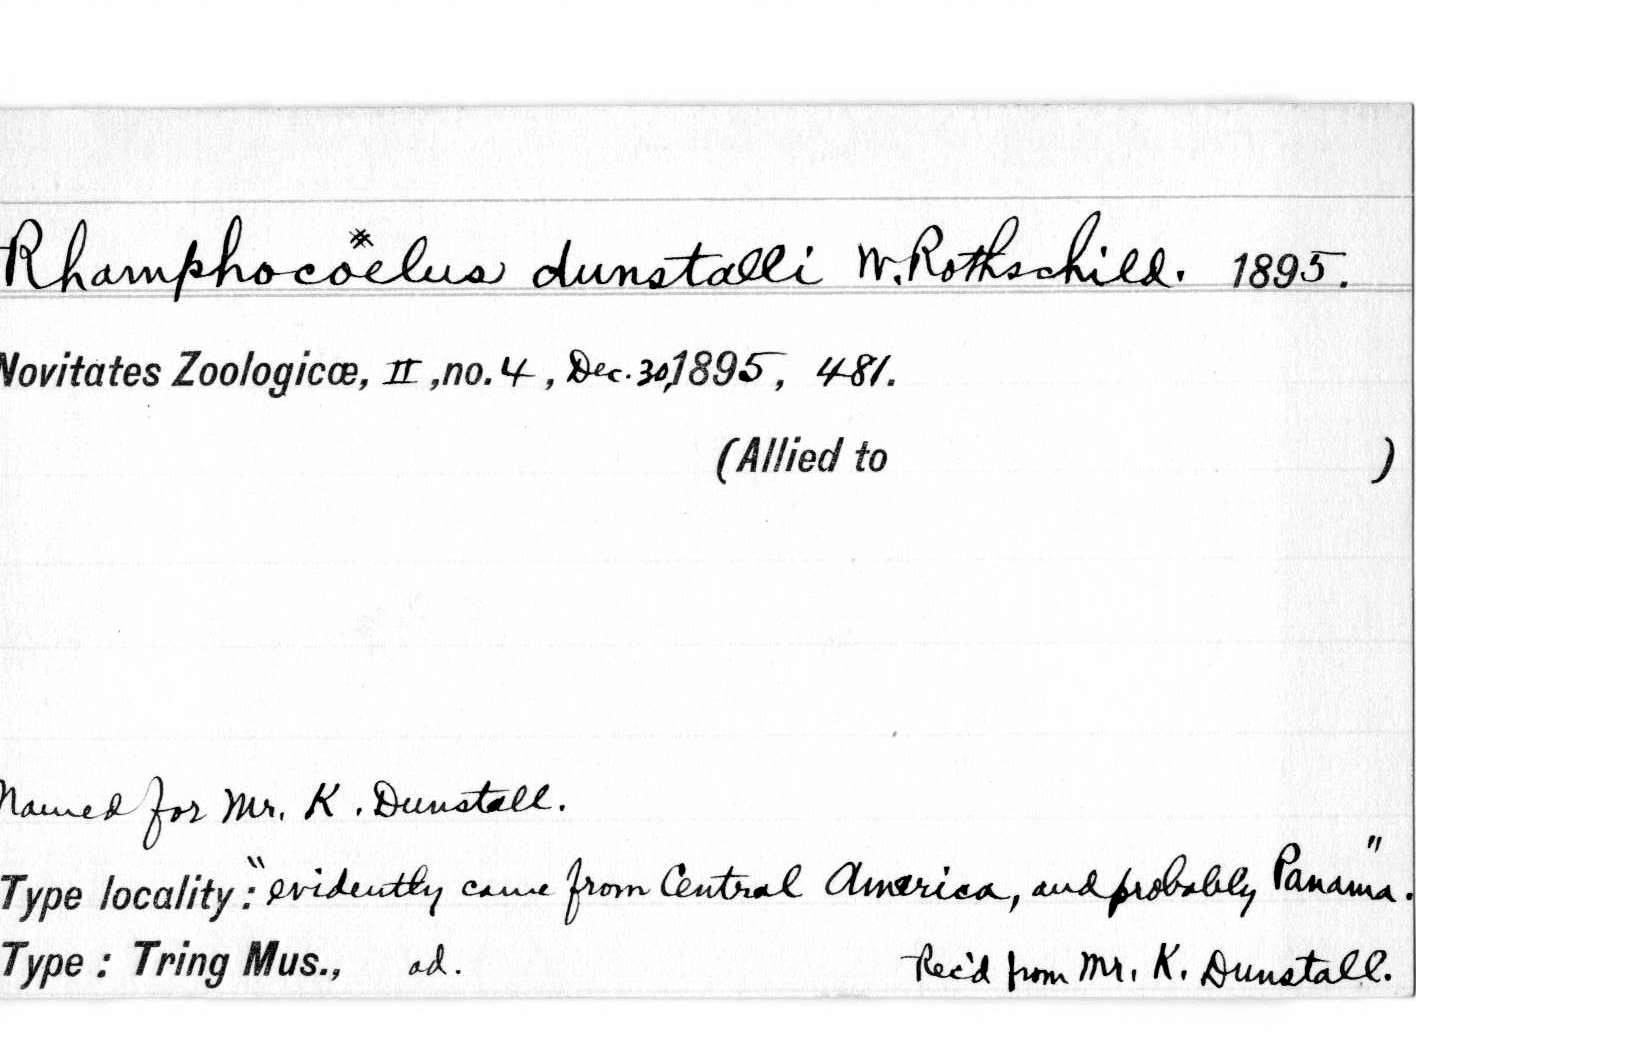 Rhamphocoelus dunstalli W. Rothschild. 1895.
Novitates Zoologicæ, II, no. 4, Dec. 30, 1895, 481.
(Allied to )
Named for Mr. K. Dunstall.
Type locality: "evidently came from Central America, and probably Panama".
Type: Tring Mus., ad. Rec'd from Mr. K. Dunstall.